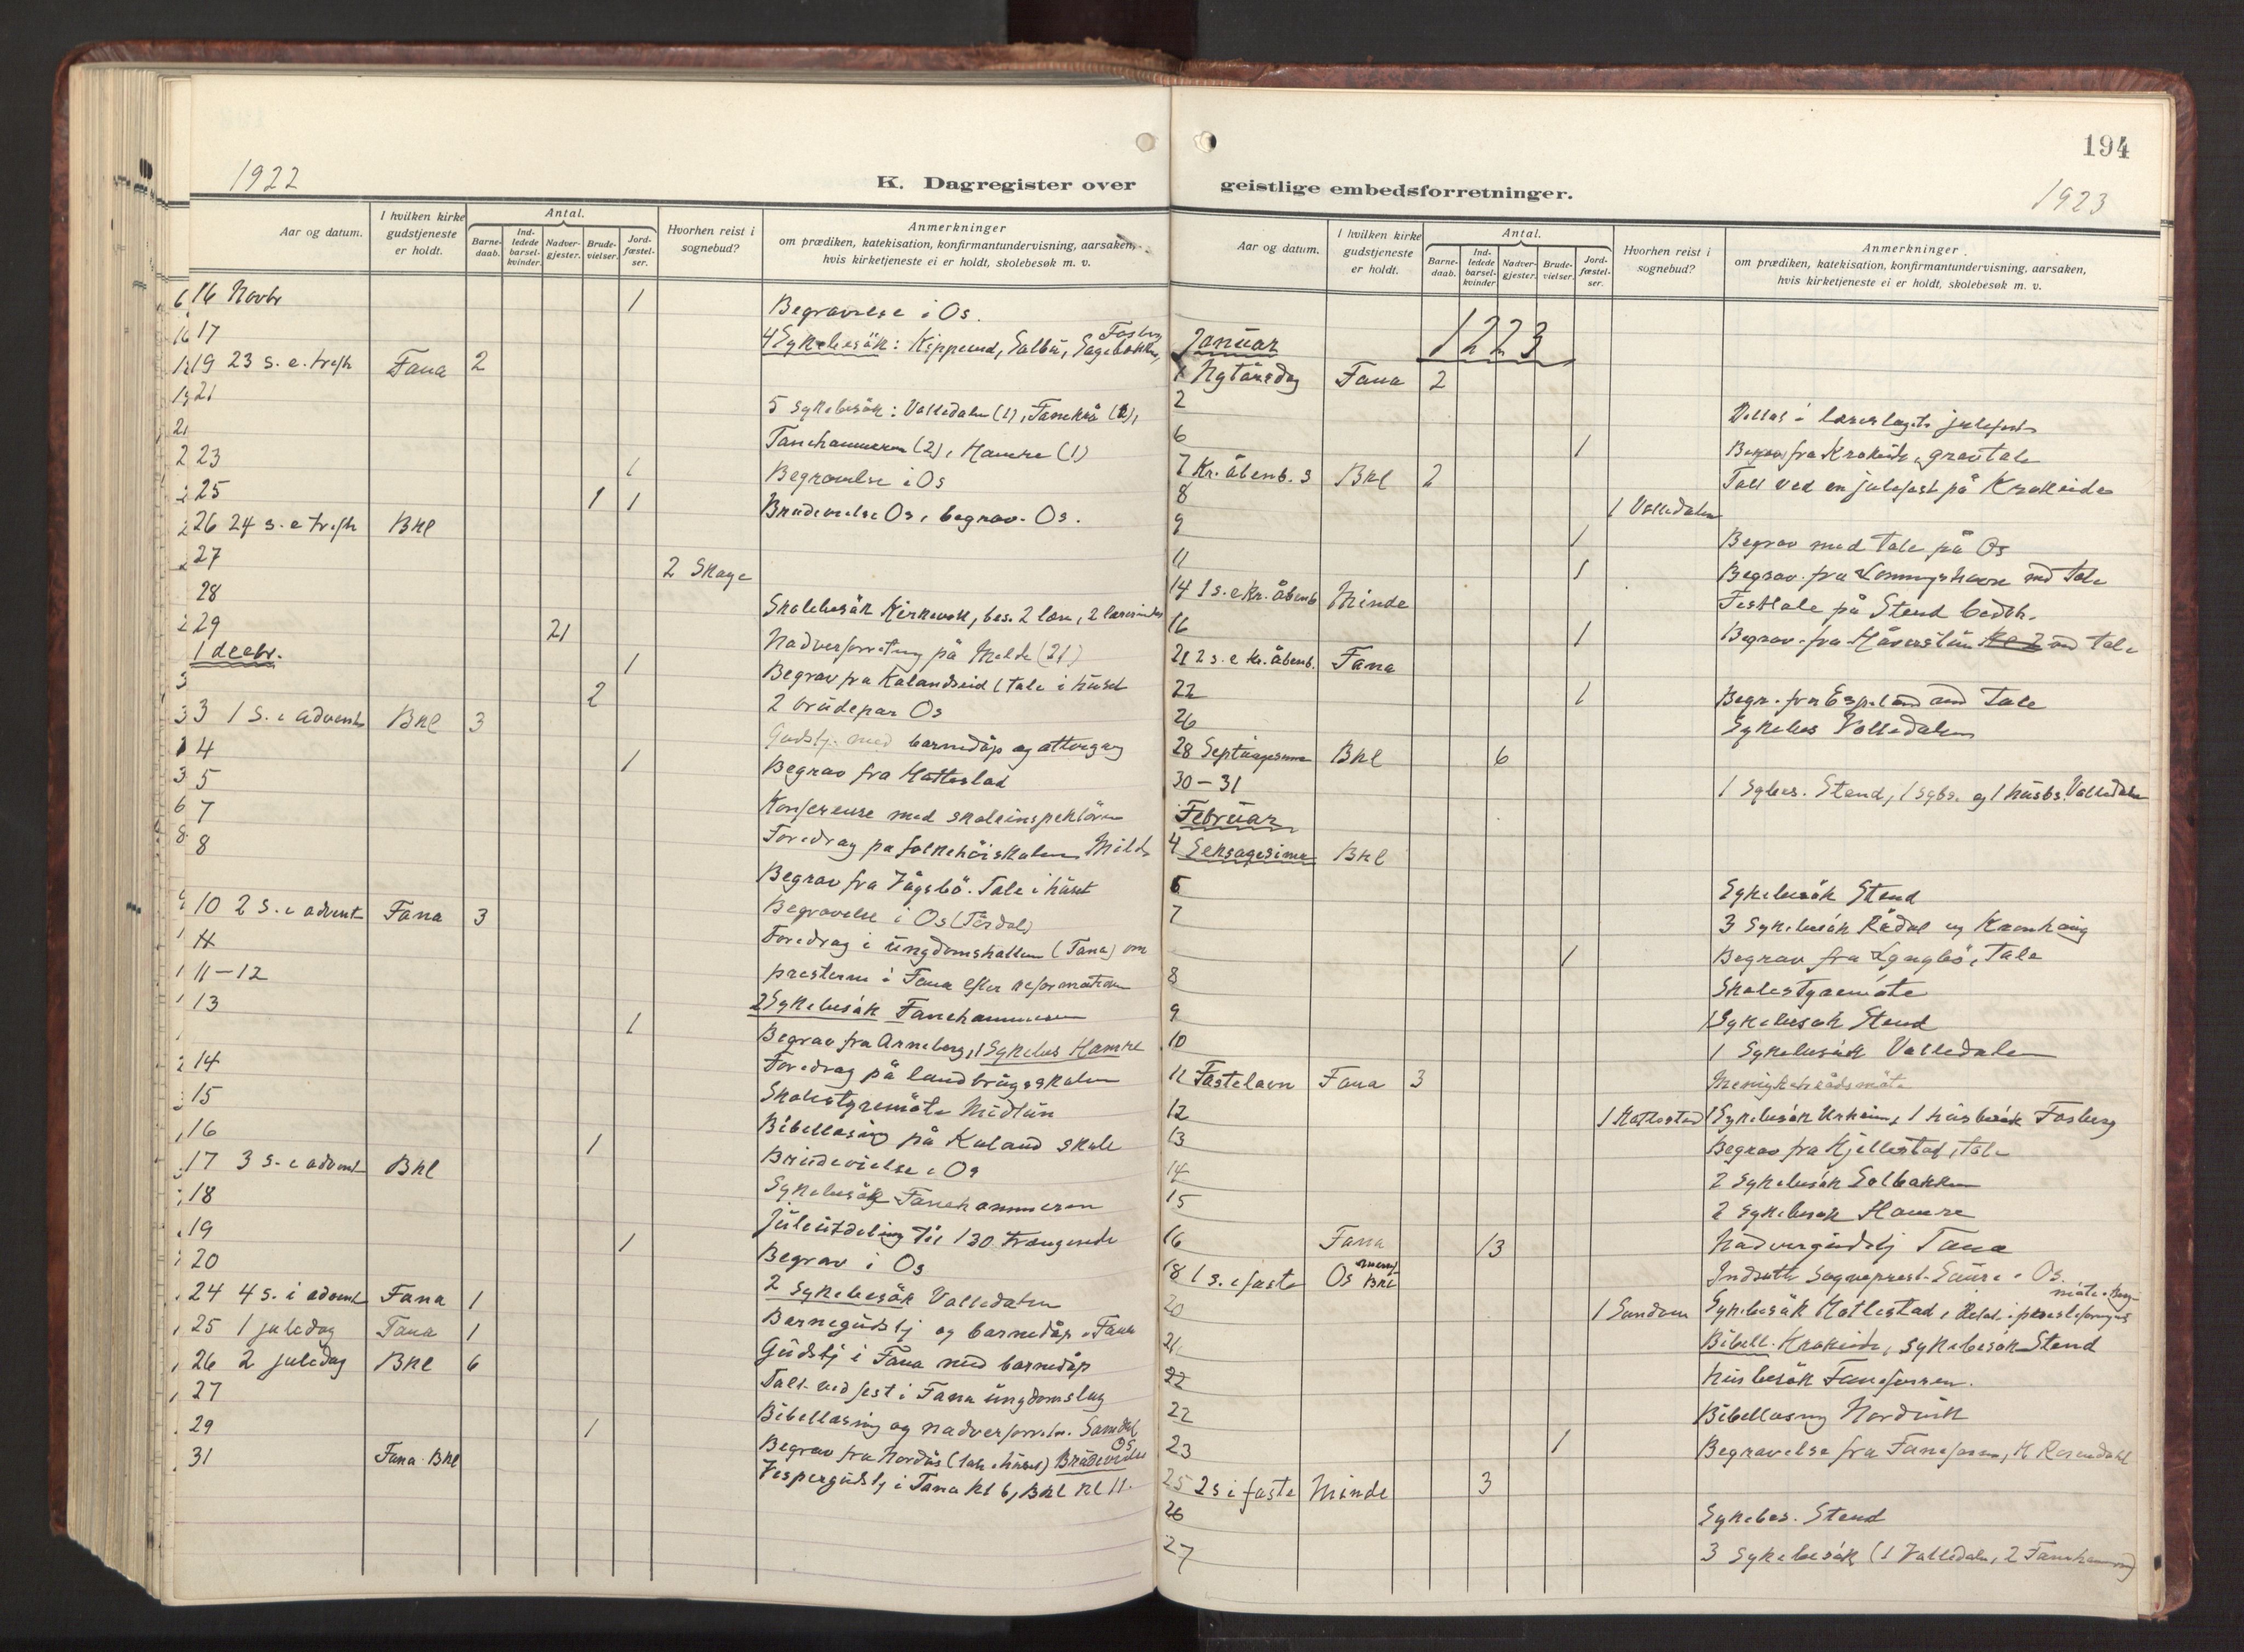 1922
K. Dagregister over
Aar og datum.
I hvilken kirke gudstjeneste er holdt.
Antal.
Barne-daab.
Ind-ledede barsel-kvinder.
Nadver-gjester.
Brude-vielser.
Jord-fæstel-ser.
Hvorhen reist i sognebud?
Anmerkninger
om prædiken, katekisation, konfirmantundervisning, aarsaken,
hvis kirketjeneste ei er holdt, skolebesøk m. v.
16 Novbr 1 Begravelse i Os.
17 4 Sykebesök:
19 23 s. e. trefh Fana 2
21 5 sykebesök: Valledalen (1),
Fanehammeren (2), Hamre (1)
23 1 Begravelse i Os
25 1 1 Brudevielse Os, begrav. Os.
26 24 s. e trefh BKl
27 2 Skage
28 Skolebesök Kirkevoll, bes. 2 lær, 2 lærerinder
29 21 Nadverforretning på Milde (21)
1 decbr. 1 Begrav fra Kalandseid (tale i huset
3 2 2 brudepar Os
3 1 s. i advent BKl 3 Gudstj. med barnedåp og altergang
4 1 Begrav fra Hatlestad
5 Konferense med skoleinspektören
7 Foredrag på folkehöiskolen Milde
8 Begrav fra Vågsbö. Tale i huset
10 2 s. i advent Fana 3 Begravelse i Os
Foredrag i ungdomshallen (Fana) om
11-12 presterne i Fana efter reformationen
13 2 Sykebesök Fanehammeren
1 Begrav fra Anneberg, 1 Sykebes Hamre
14 Foredrag på landbrugsskolen
15 Skolestyremöte Midtun
16 Bibellæsing på Kaland skule
17 3 s. i advent BKl 1 Brudevielse i Os
18 Sykebesök Fanehammeren
19 Juleutdeling til 130 trængende
20 1 Begrav i Os
24 4 s. i advent Fana 1 2 sykebesök Valledalen
25 1 juledag Fana 1 Barnegudstj og barnedåp i Fana
26 2 juledag BKl 6 Gudstj i Fana med barnedåp
27 Tale ved fest i Fana ungdomslag
29 1 Bibellæsing og nadverforretn. Samdal
31 Fana BKl Begrav fra Nordås (tale i huset) Brudevielse Os
Vespergudstj i Fana kl 6, BKl kl 11.
194
1923
geistlige embedsforretninger.
Aar og datum.
I hvilken kirke gudstjeneste er holdt.
Antal.
Barne-daab.
Ind-ledede barsel-kvinder
Nadver-gjester.
Brude-vielser.
Jord-fæstel-ser.
Hvorhen reist i sognebud?
Anmerkninger
om prædiken, katekisation, konfirmantundervisning, aarsaken,
hvis kirketjeneste ei er holdt, skolebesøk m. v.
1223
Januar
1 Nytårsdag Fana 2
2 Deltat i lærerlagets julefest
6 1 Begrav fra Krokeide, gravtale
7 Kr. åbenb. s BKl 2 Tale ved en julefest på Krokeide
8 1 Valledalen
9 1 Begrav med tale på Os
11 1 Begrav. fra med Tale
14 1 s. e Kr. åbenb Minde Festtale på Stend
16 1 Begrav. fra tale
21 2 s. e Kr. åbenb. Fana
22 1 Begr. fra Espeland med Tale
26 Sykebes Valledalen
28 Septuagesima BKl 6
30-31 1 Sykes. Stend, 1 sybs. og 1 husbs. Valledalen
Februar
4 Seksagesima BKl
6 Sykebesök Stend
7 3 Sykebesök Rådal og Kronhaug
1 Begrav fra Tale
8 Skolestyremöte
9 1 Sykebesök Stend
10 1 Sykebesök Valledalen
11 Fastelavn Fana 3 Menighetsrådsmöte
12 1 Hatlestad 1 Sykebesök 1 husbesök Fosberg
13 Begrav fra Kjellestad, tale
14 2 Sykebesök Solbakken
15 2 Sykebesök Hamre
16 Fana 13 Nadvergudstj Fana
18 1 s. i faste Os BKl Indsatte Sogneprest Saure i Os.
20 1 Sandven Sykebesök Hatlestad,
21 Bibell. Krokeide, sykebesök Stend
22 Husbesök Fanefossen.
22 Bibellæsning Nordvik
23 1 Begravelse fra Fanefossen, H Rosendahl
25 2 s i faste Minde 3
26 Sykebes. Stend
27 3 sykebesök (1 Valledalen, 2 Fanehammeren)